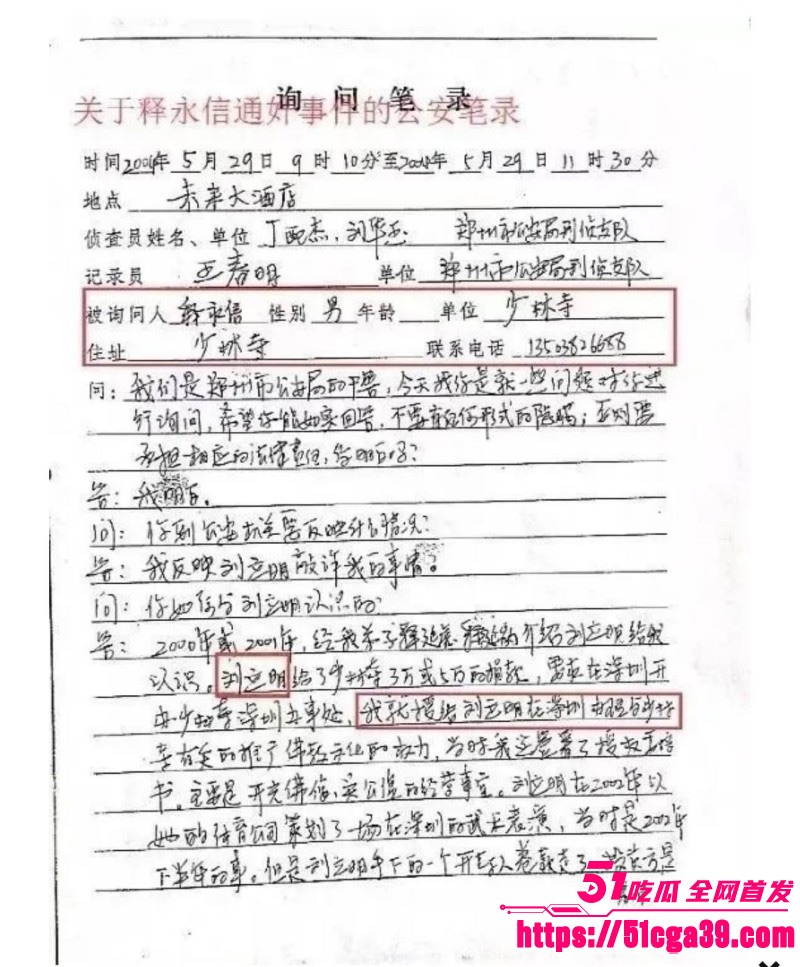 询问笔录
关于释永信通奸事件的公安笔录
时间2004年5月29日9时10分至2004年5月29日11时30分
地点 未来大酒店
侦查员姓名、单位 丁 杰、刘华 郑州市公安局刑侦支队
记录员 王 明 单位 郑州市公安局刑侦支队
被询问人 释永信 性别 男 年龄 单位 少林寺
住址 少林寺 联系电话 13503826688
问:我们是郑州市公安局的干警,今天我们是就一些问题对你进
行询问,希望你能如实回答,不要有任何形式的隐瞒;否则要
承担相应的法律责任,你明白吗?
答:我明白。
问:你到公安机关要反映什么情况?
答:我反映刘立明敲诈我的事情。
问:你如何与刘立明认识的?
答:2000年或2001年,经我弟子释延 介绍刘立明给我
认识。刘立明给了少林寺3万或5万的捐款,要求在深圳开
办少林寺深圳办事处,我就授给刘立明在深圳办理与少林
寺有关的推广佛教文化的权力,当时我还签署了授权
书,主要是开光佛像、 的经营事宜。刘立明在2002年以
她的体育公司策划了一场在深圳的武术表演,当时是2002年
下半年的事。但是刘立明手下的一个 人卷款走了
51吃瓜 全网首发
https://51cga39.com